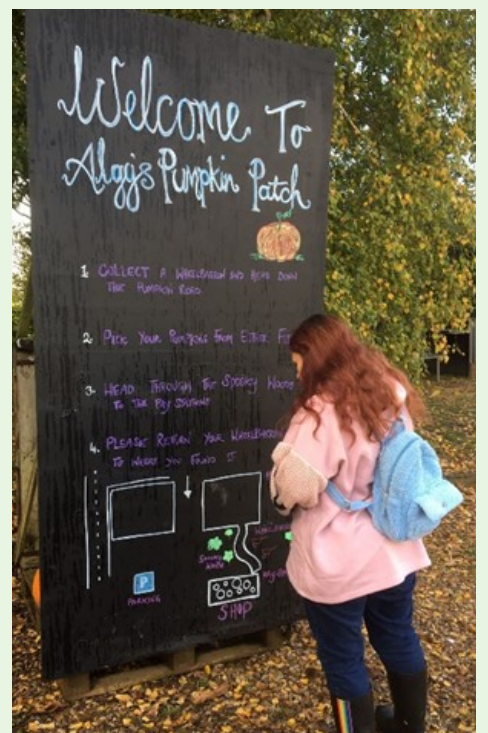 Welcome To
Algy's Pumpkin Patch
1. COLLECT A WHEELBARROW AND HEAD DOWN
THE PUMPKIN ROAD
2. PICK YOUR PUMPKINS FROM EITHER
3. HEAD THROUGH THE SPOOKY WOODS
TO THE PAY STATIONS
4. PLEASE RETURN YOUR WHEELBARROW
TO WHERE YOU FOUND IT
SPOOKY
WOODS
P
PARKING
SHOP